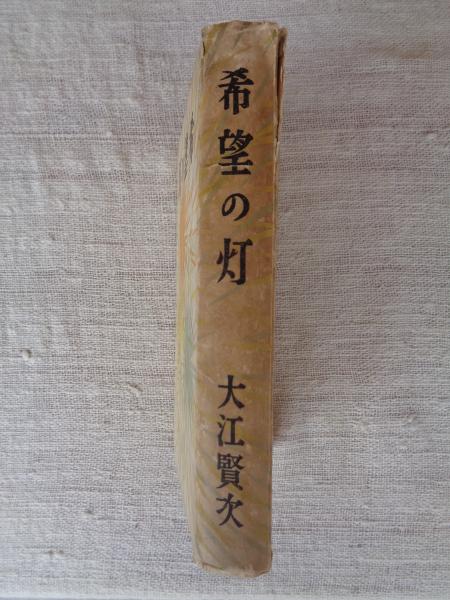 希望の灯
大江賢次